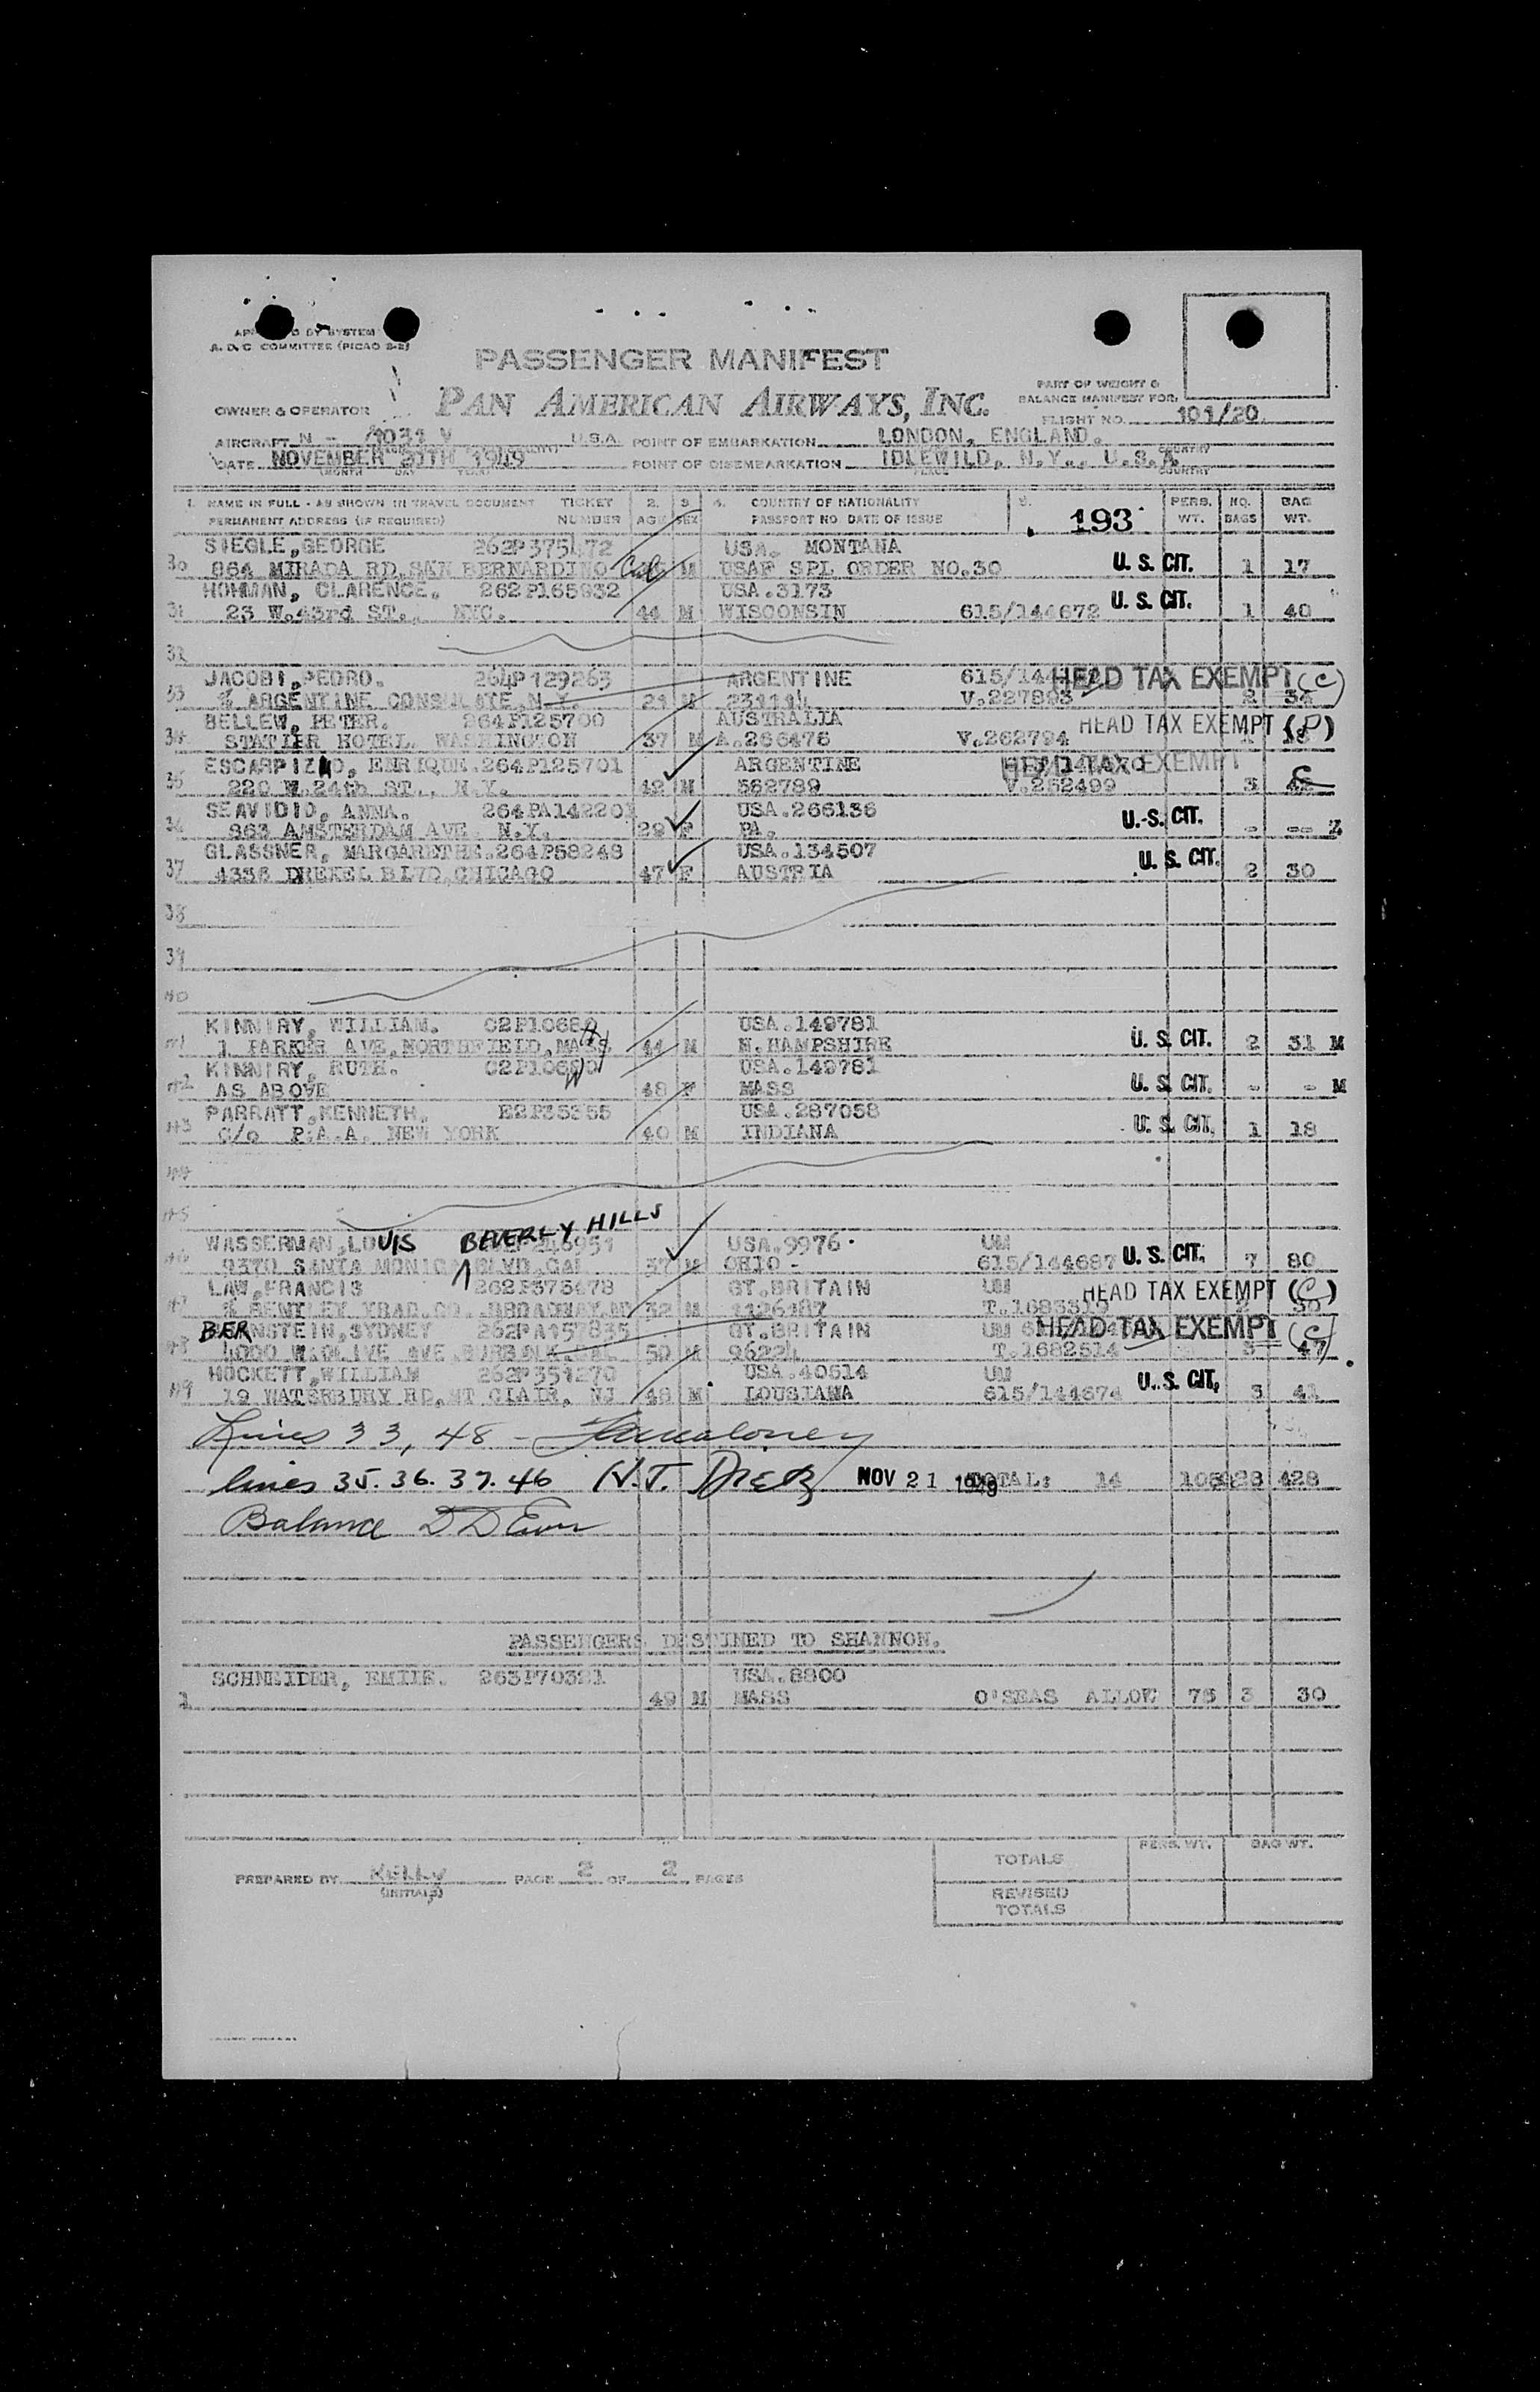 A. D. C. COMMITTEE (PICAO 2-2)
PASSENGER MANIFEST
PAN AMERICAN AIRWAYS, INC.
PART OF WEIGHT &
BALANCE MANIFEST FOR:
OWNER & OPERATOR
FLIGHT NO. 101/20.
AIRCRAFT N - 1031 V U.S.A. POINT OF EMBARKATION LONDON, ENGLAND. COUNTRY
DATE NOVEMBER 20TH 1949 POINT OF DISEMBARKATION IDLEWILD, N.Y., U.S.A.
MONTH DAY YEAR PLACE COUNTRY
1. NAME IN FULL - AS SHOWN IN TRAVEL DOCUMENT TICKET 2. 3 4. COUNTRY OF NATIONALITY 5. 193 PERS. NO. BAG
PERMANENT ADDRESS (IF REQUIRED) NUMBER AGE SEX PASSPORT NO. DATE OF ISSUE WT. BAGS WT.
SIEGLE, GEORGE 262P375472 USA. MONTANA
30 864 MIRADA RD. SAN BERNARDINO M USAF SPL ORDER NO.30 U. S. CIT. 1 17
HOHMAN, CLARENCE. 262P165932 USA.3173
31 23 W.43rd ST., NYC. 44 M WISCONSIN 615/144672 U. S. CIT. 1 40
32
JACOBI, PEDRO. 264P129263 ARGENTINE HEAD TAX EXEMPT (C)
33 % ARGENTINE CONSULATE, N.Y. 21 M 231114 V.227893 2 34
BELLEW, PETER. 264P125700 AUSTRALIA HEAD TAX EXEMPT (P)
34 STATLER HOTEL. WASHINGTON 37 M A.266476 V.262794
ENRIQUE. 264P125701 ARGENTINE HEAD TAX EXEMPT
35 220 W.24th ST., N.Y. 42 M 562789 V.252499 3
SEAVIDIO, ANNA. 264PA142201 USA.266136
36 863 AMSTERDAM AVE. N.Y. 29 F PA. U.S. CIT. - --
GLASSNER, MARGARETHE. 264P58249 USA.134507
37 4336 DREXEL BLVD, CHICAGO 47 F AUSTRIA U. S. CIT. 2 30
38
39
40
KINNIRY, WILLIAM. USA.149781
41 1 PARKER AVE, NORTHFIELD, MASS 44 M N.HAMPSHIRE U. S. CIT. 2 31 M
KINNIRY, RUTH. USA.149781
42 AS ABOVE 48 F MASS U. S. CIT. - - M
PARRATT, KENNETH. E2P35355 USA.287058
43 C/o P.A.A. NEW YORK 40 M INDIANA U. S. CIT. 1 18
44
45
BEVERLY HILLS
WASSERMAN, LOUIS USA.9976 UM
46 9370 SANTA MONICA BLVD, CAL 37 M OHIO - 615/144687 U. S. CIT. 7 80
LAW, FRANCIS 262P375478 GT.BRITAIN UM HEAD TAX EXEMPT (C)
47 % BENTLEY TRAD.CO. 32 M T.1683319
BERNSTEIN, SYDNEY 262PA157835 GT.BRITAIN UM HEAD TAX EXEMPT (C)
48 4000 W.OLIVE AVE. BURBANK. CAL 50 M 96224 T.1682514 3 47
HOCKETT, WILLIAM 262P351270 USA.40614 UM
49 19 WATERBURY RD, MT CLAIR, NJ 48 M LOUSIANA 615/144674 U. S. CIT. 3 41
Lines 33, 48 -
lines 35. 36. 37. 46 NOV 21 1949 TOTAL: 14 428
Balance
PASSENGERS DESTINED TO SHANNON.
SCHNEIDER, EMILE. 263P70321 USA.8800
1 49 M MASS O'SEAS ALLOW 75 3 30
PERS. WT. BAG WT.
TOTALS
PREPARED BY KELLY PAGE 2 OF 2 PAGES
(INITIALS)
REVISED
TOTALS